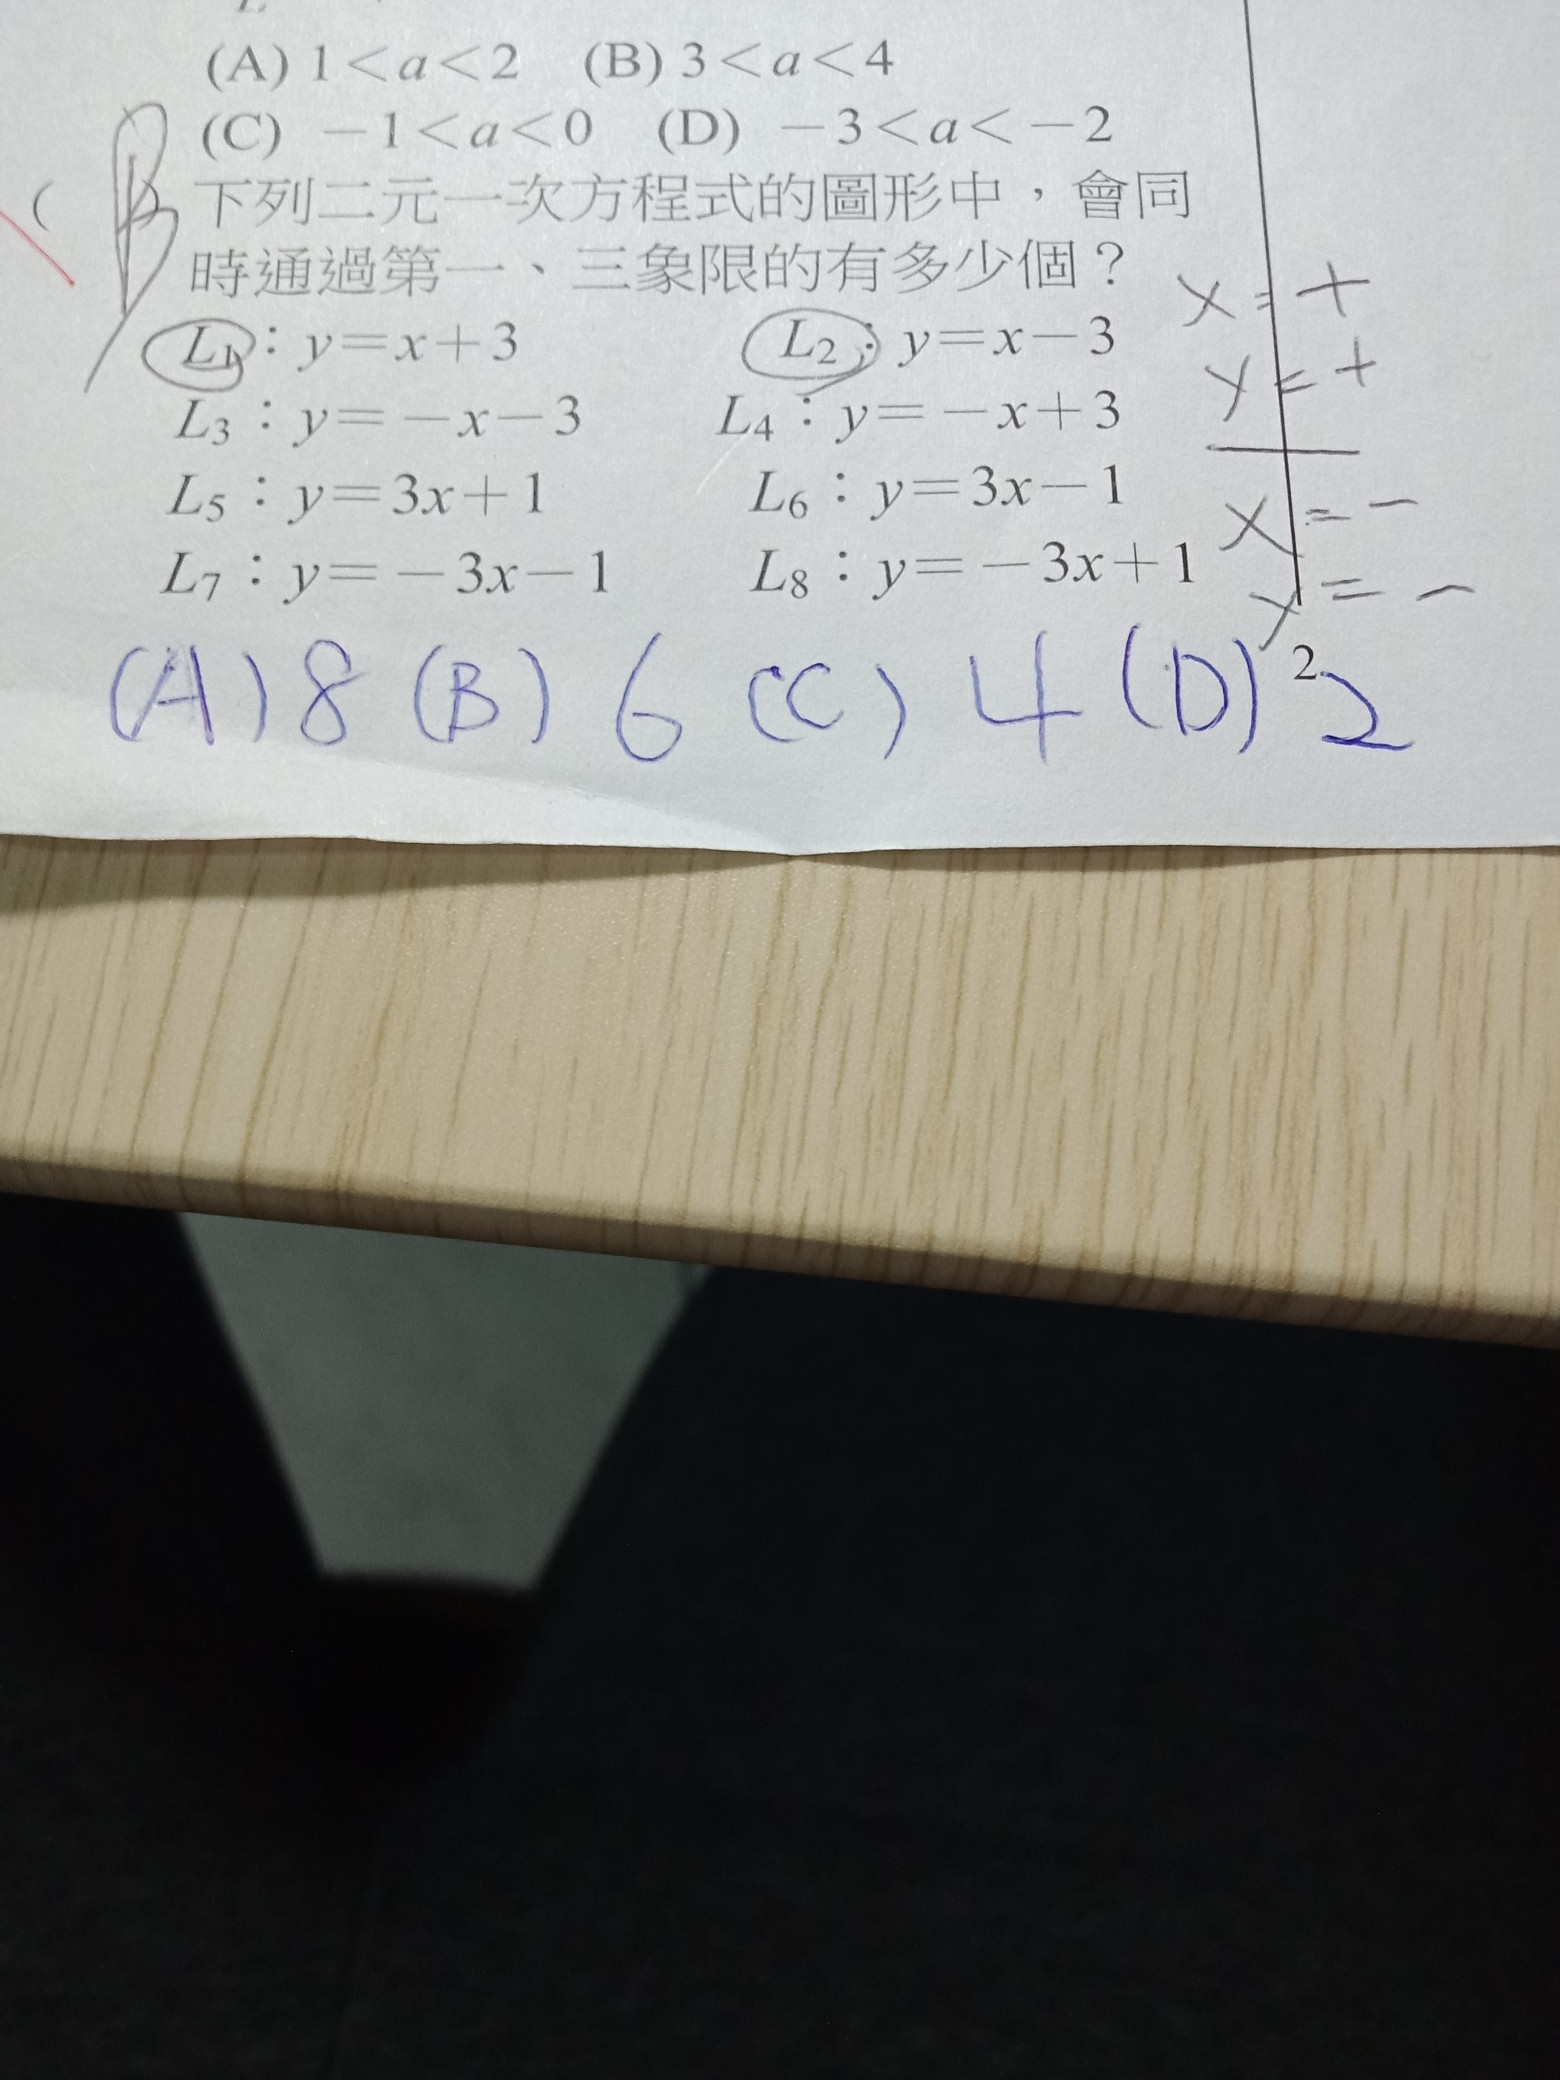 (A) 1＜a＜2 (B) 3＜a＜4
(C) －1＜a＜0 (D) －3＜a＜－2
( B 下列二元一次方程式的圖形中，會同
時通過第一、三象限的有多少個？
L1：y＝x＋3 L2：y＝x－3
L3：y＝－x－3 L4：y＝－x＋3
L5：y＝3x＋1 L6：y＝3x－1
L7：y＝－3x－1 L8：y＝－3x＋1
x = +
y = +
x = -
y = -
2
(A) 8 (B) 6 (C) 4 (D) 2